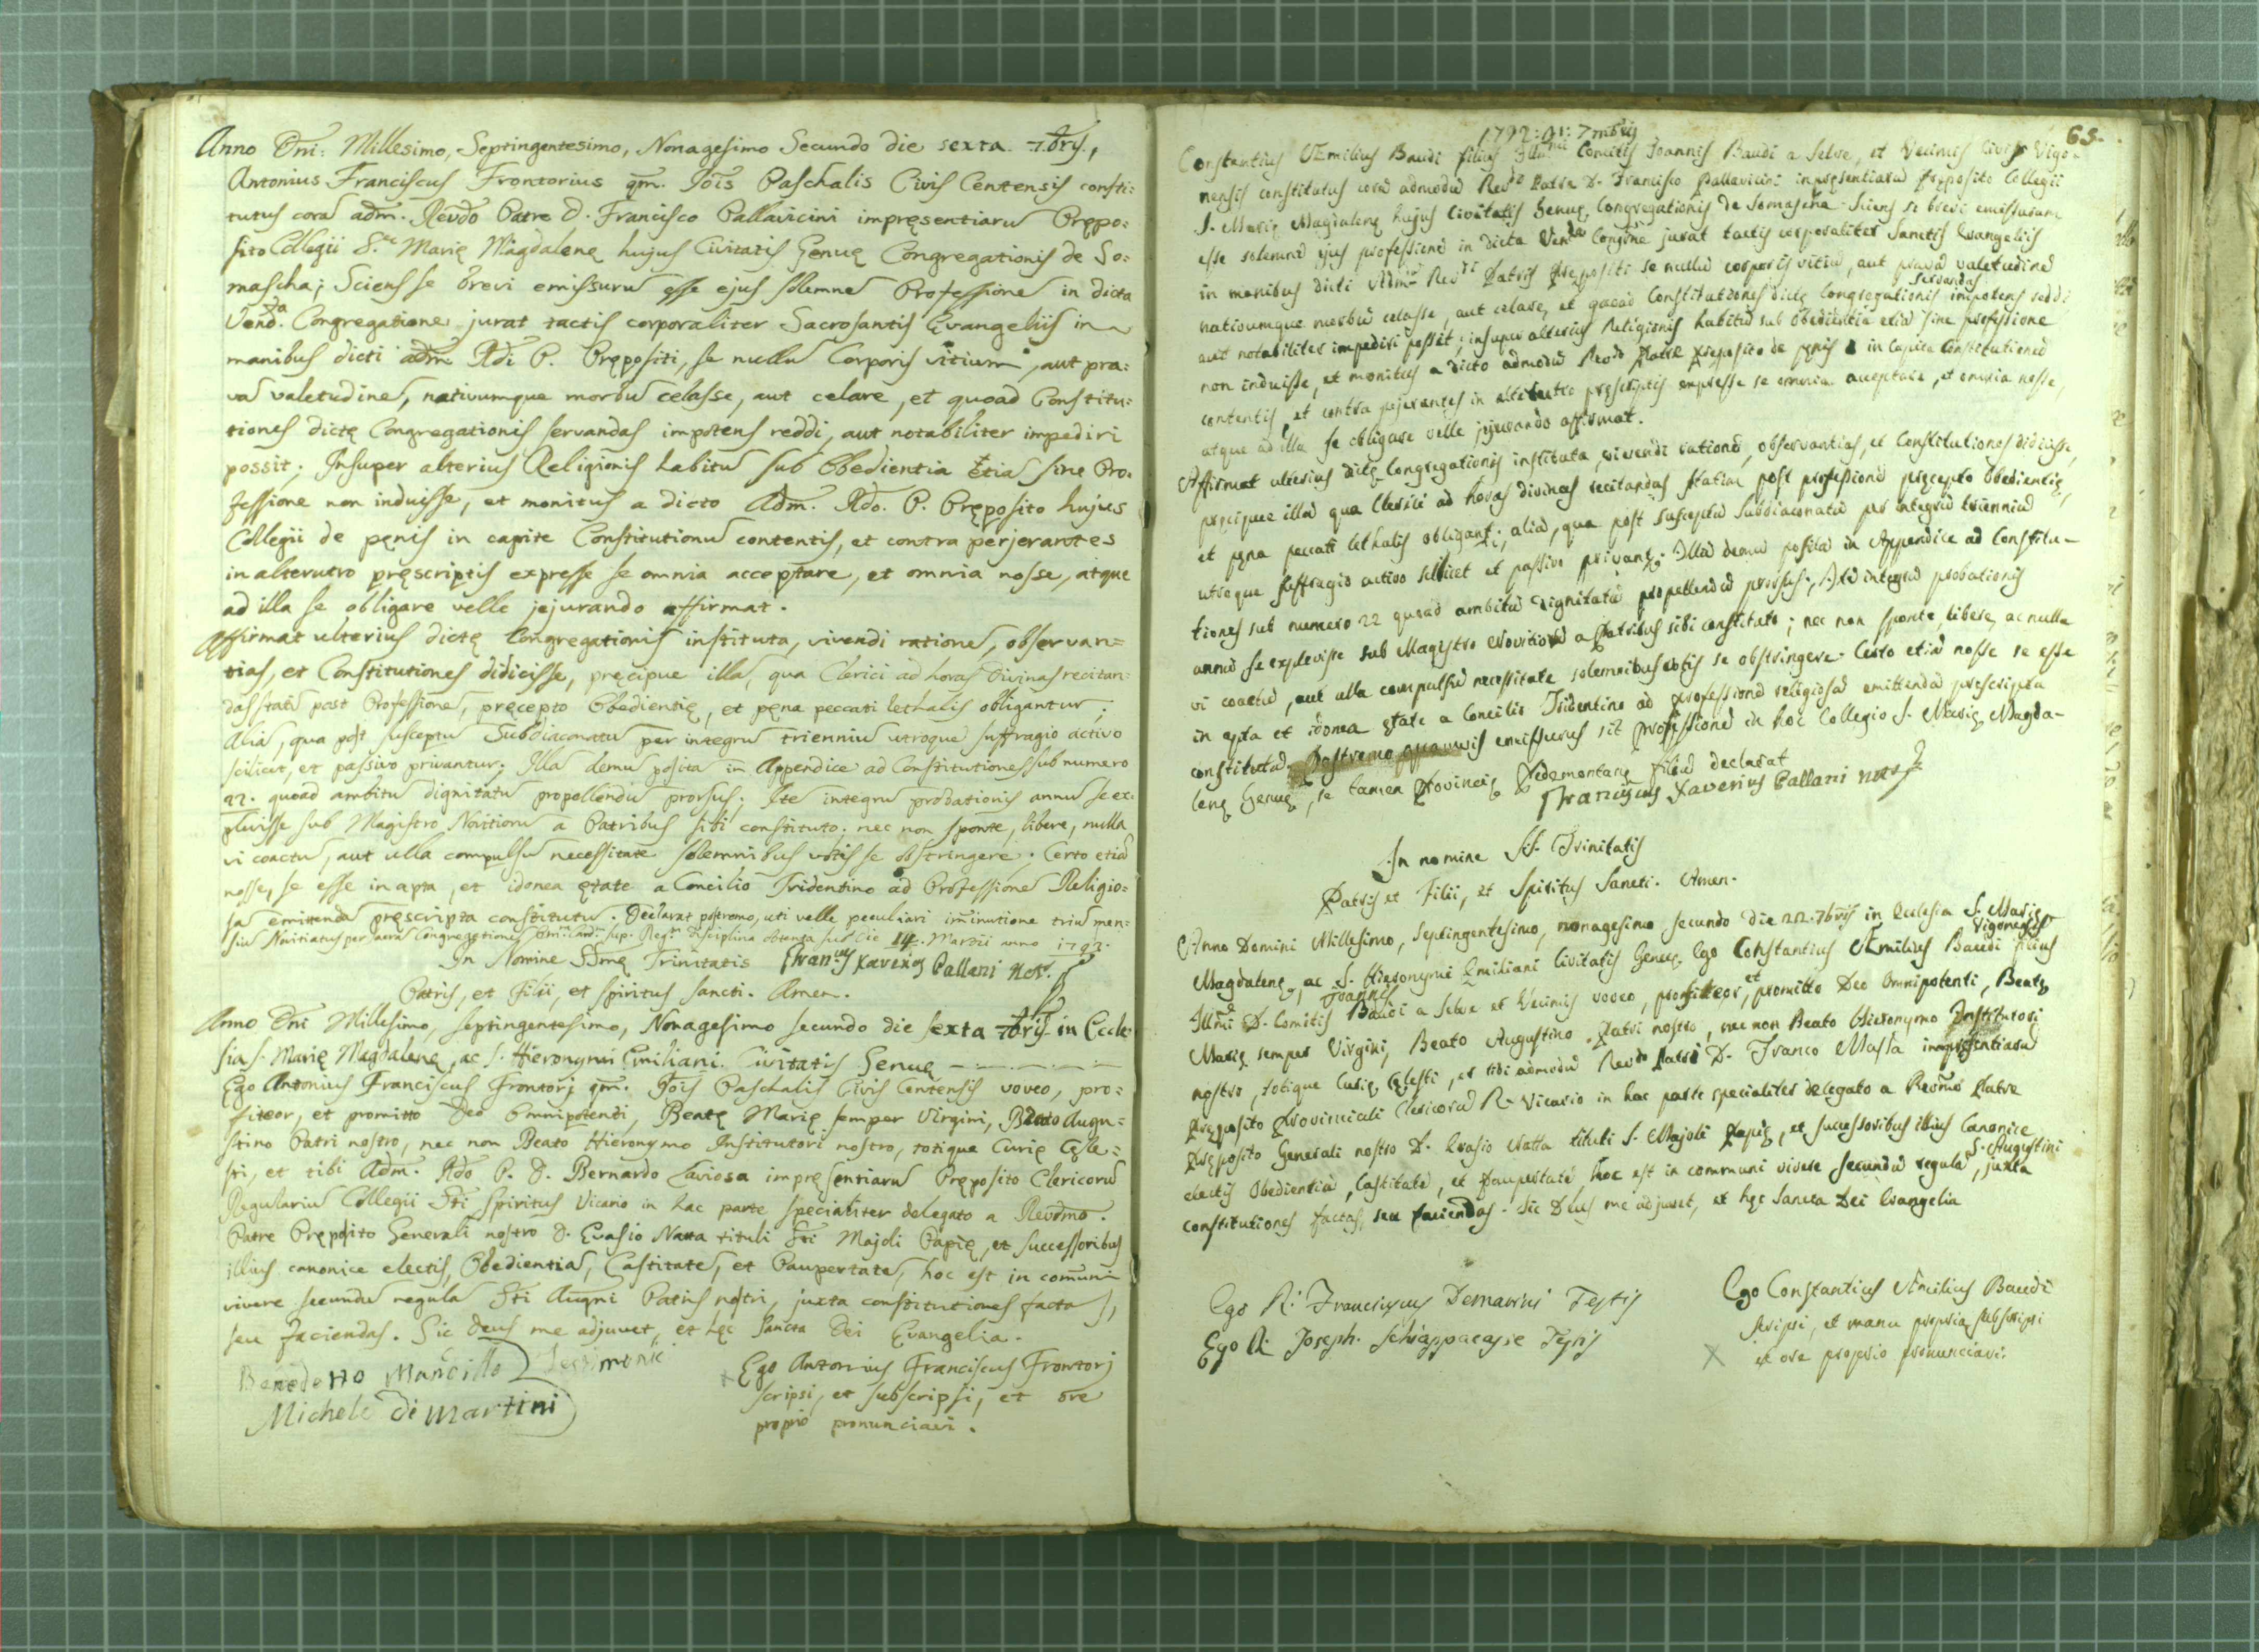 Anno Dni: Millesimo, Septingentesimo, Nonagesimo Secundo die sexta 7bris,
Antonius Franciscus Frontorius qm. Jois Paschalis Civis Centensis consti:
tutus cora adm. Revdo Patre D. Francisco Pallavicini impręsentiaru Prępo:
sito Collegii S.tę Marię Magdalenę hujus Civitatis Genuę Congregationis de So:
mascha; Sciens se brevi emissuru esse ejus solemne Professione in dicta
Vend.da Congregatione jurat tactis corporaliter Sacrosantis Evangeliis in
manibus dicti adm. Rdi P. Prępositi, se nullu Corporis vitium, aut pra:
va valetudine, nativumque morbu celasse, aut celare, et quoad Constitu:
tiones dictę Congregationis servandas impotens reddi, aut notabiliter impediri
possit; Insuper alterius Religionis habitu sub Obedientia etia sine Pro:
fessione non induisse, et monitus a dicto Adm. Rdo. P. Pręposito hujus
Collegii de pęnis in capite Constitutionu contentis, et contra perjerantes
in alterutro pręscriptis expresse se omnia acceptare, et omnia nosse, atque
ad illa se obligare velle jejurando affirmat.
Affirmat ulterius dictę Congregationis instituta, vivendi ratione, observan=
tias, et Constitutiones didicisse, pręcipue illa, qua Clerici ad horas Divinas recitan:
das statu post Professione, pręcepto Obedientię, et pęna peccati lethalis obligantur;
Alia, qua post susceptu Subdiaconatu per integru trienniu utroque suffragio activo
scilicet, et passivo privantur; Illa demu posita in Appendice ad Constitutiones sub numero
22. quoad ambitu dignitatu propellendu prorsus; Ite integru probationis annu se ex:
plevisse sub Magistro Novitioru a Patribus sibi constituto; nec non sponte, libere, nulla
vi coactu, aut ulla compulsu necessitate solemnibus votis se obstringere; Certo etia
nosse, se esse in apta, et idonea ętate a Concilio Tridentino ad Professione Religio:
sa emittenda pręscripta constitutu. Declarat postremo, uti velle peculiari iminutione triu men:
siu Novitiatus per sacra Congregatione sup. Reg.ri Disciplina obtenta sub die 14. Martii anno 1792.
In Nomine SSmę Trinitatis Fran.cus Xaverius Pallani Not.s
Patris, et Filii, et Spiritus Sancti. Amen.
Anno Dni Millesimo, septingentesimo, Nonagesimo secundo die sexta 7bris in Eccle
sia S. Marię Magdalenę, ac S. Hieronymi Emiliani. Civitatis Genuę
Ego Antonius Franciscus Frontorj qm. Jois Paschalis Civis Centensis voveo, pro:
fiteor, et promitto Deo Omnipotenti, Beatę Marię semper Virgini, Beato Augu:
stino Patri nostro, nec non Beato Hieronymo Institutori nostro, totique Curię Cęle:
sti, et tibi Adm. Rdo P. D. Bernardo Laviosa impręsentiaru Pręposito Clericoru
Regulariu Collegii Sti Spiritus Vicario in hac parte specialiter delegato a Revdmo.
Patre Pręposito Generali nostro D. Evasio Natta tituli Sti Majoli Papię, et successoribus
illius canonice electis, Obedientia, Castitate, et Paupertate, hoc est in comuni
vivere secundu regula Sti Augni Patris nostri, juxta constitutiones factas,
seu faciendas. Sic Deus me adjuvet, et hęc Sancta Dei Evangelia.
Benedetto Mancillo Testimonii
Michele Di Martini
Ego Antonius Franciscus Frontorj
scripsi, et subscripsi, et ore
proprio pronunciavi.
65.
1792: 7mbris
Constantius Æmilius Baudi filius Illmi Comitis Joannis Baudi a Selve, et Vecinis Civis Vigo=
nensis constitutus cora admodu Revdo Patre D. Francisco Pallavicini inpręsentiaru Pręposito Collegii
S. Marię Magdalenę hujus Civitatis Genuę Congregationis de Somascha. Sciens se brevi emissurum
esse solemne ejus professione in dicta Ven.da Congne jurat tactis corporaliter Sanctis Evangeliis
in manibus dicti Adm. Revdi Patris Prępositi se nullu corporis vitiu, aut prava valetudine
nativumque morbu celasse, aut celare, et quoad Constitutiones dictę Congregationis servandas impotens reddi
aut notabiliter impediri possit; insuper alterius Religionis habitu sub Obedientia etia sine professione
non induisse, et monitus a dicto admodu Revdo Patre Pręposito de pęnis in Capite Constitutionu
contentis, et contra pejerantes in alterutro pręscriptis expresse se omnia acceptare, et omnia nosse,
atque ad illa se obligare velle jejurando affirmat.
Affirmat ulterius dictę Congregationis instituta, vivendi ratione, observantias, et Constitutiones didicisse,
pręcipue illa qua Clerici ad horas divinas recitandas statim post professione pręcepto Obedientię,
et pęna peccati lethalis obligant; alia, qua post susceptu Subdiaconatu per integru trienniu
utroque suffragio activo scilicet et passivo privant; Illa demu posita in Appendice ad Constitu-
tiones sub numero 22 quoad ambitu dignitatu propellendu prorsus; Ite integru probationis
annu se explevisse sub Magistro Novitioru a Patribus sibi constituto; nec non sponte, libere, ac nulla
vi coactu, aut ulla compulsu necessitate solemnibus votis se obstringere. Certo etia nosse se esse
in apta et idonea ętate a Concilio Tridentino ad professione religiosa emittenda pręscripta
constitutu. Postremo quamvis emissurus sit professione in hoc Collegio S. Marię Magda-
lenę Genuę, se tamen Provincię Pedemontanę filiu declarat
Franciscus Xaverius Pallani not.s
In nomine SS. Trinitatis
Patris et Filii, et Spiritus Sancti. Amen.
Anno Domini Millesimo, septingentesimo, nonagesimo secundo die 22. 7bris in Ecclesia S. Marię
Magdalenę, ac S. Hieronymi Emiliani Civitatis Genuę. Ego Constantius Æmilius Baudi Vigonensis filius
Illmi D. Comitis Joannis Baudi a Selve et Vecinis voveo, profiteor, et promitto Deo Omnipotenti, Beatę
Marię semper Virgini, Beato Augustino Patri nostro, nec non Beato Hieronymo Institutori
nostro, totique Curię Cęlesti, et tibi admodu Revdo Patri D. Franco Massa inpręsentiaru
Pręposito Provinciali Clericoru R. Vicario in hac parte specialiter delegato a Revmo Patre
Pręposito Generali nostro D. Evasio Natta tituli S. Majoli Papię, et successoribus illius Canonice
electis Obedientia, Castitate, et Paupertate hoc est in communi vivere secundu regula S. Augustini, juxta
constitutiones factas, seu faciendas. Sic Deus me adjuvet, et hęc Sancta Dei Evangelia
Ego R. Franciscus Demarini Testis
Ego R. Joseph. Schiappacasse Testis
Ego Constantius Æmilius Baudi
scripsi, et manu propria subscripsi
et ore proprio pronunciavi.